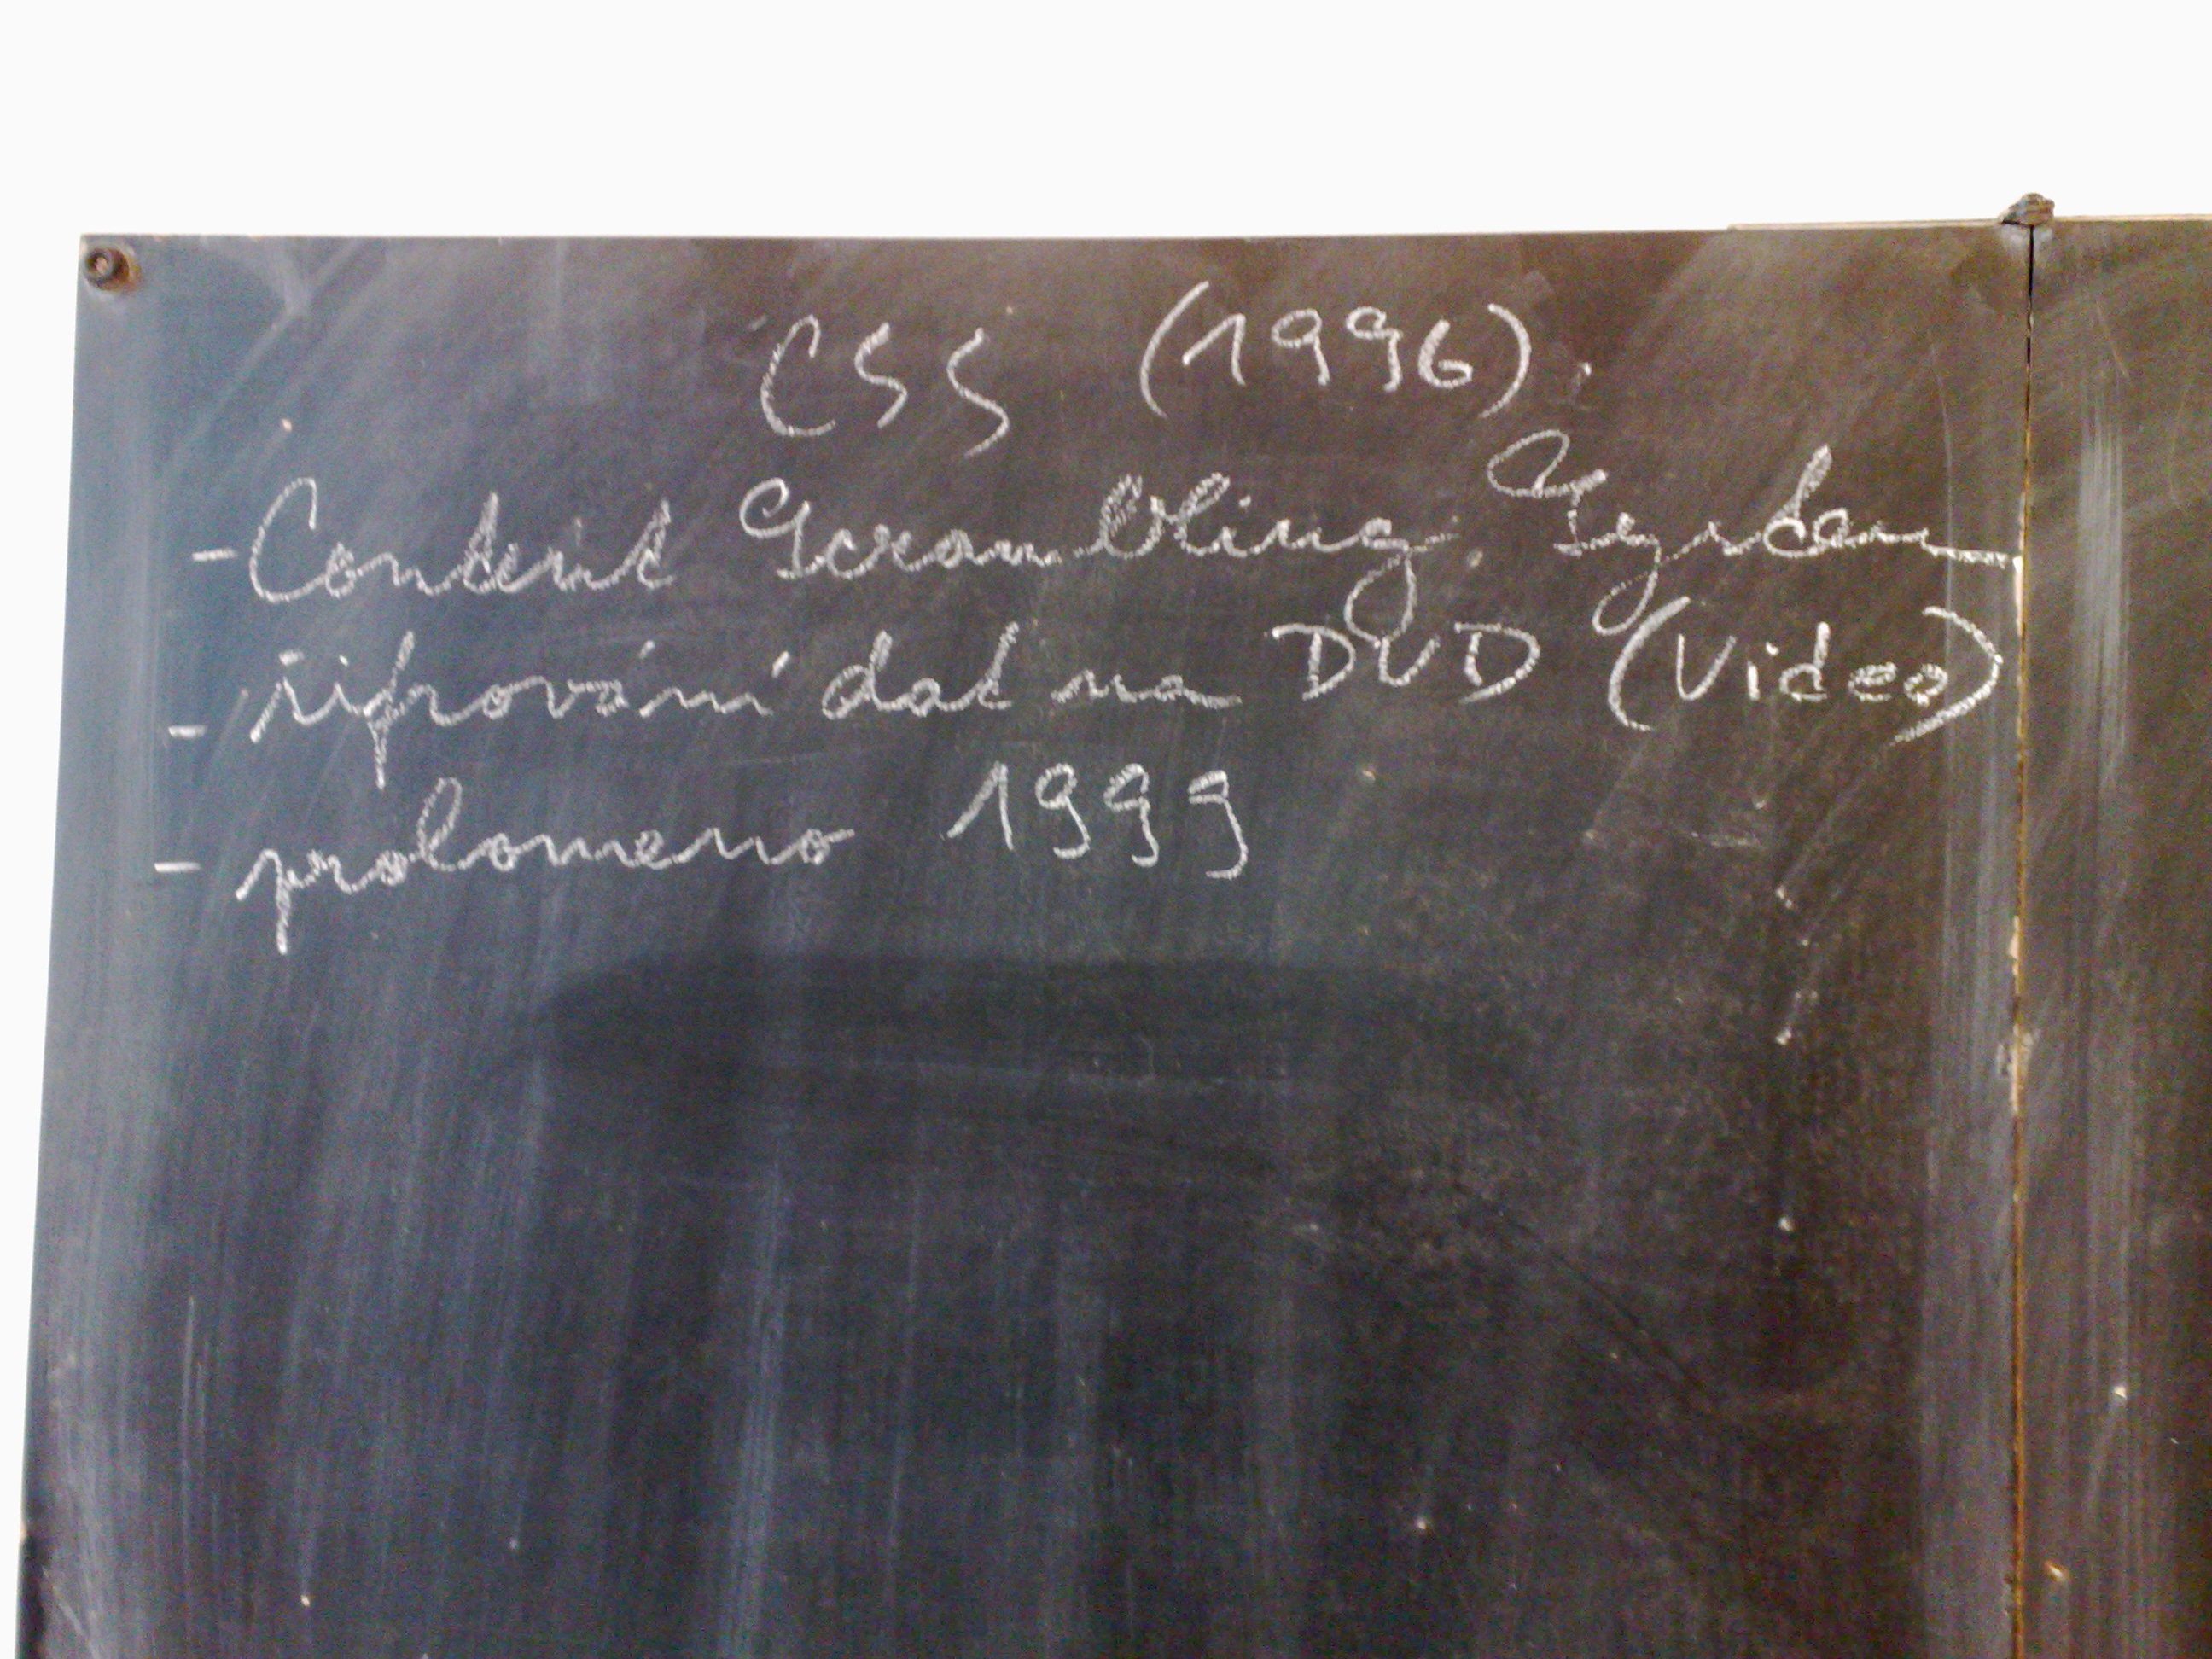 CSS (1996)
- Content Scrambling System
- šifrování dat na DVD (Video)
- prolomeno 1999